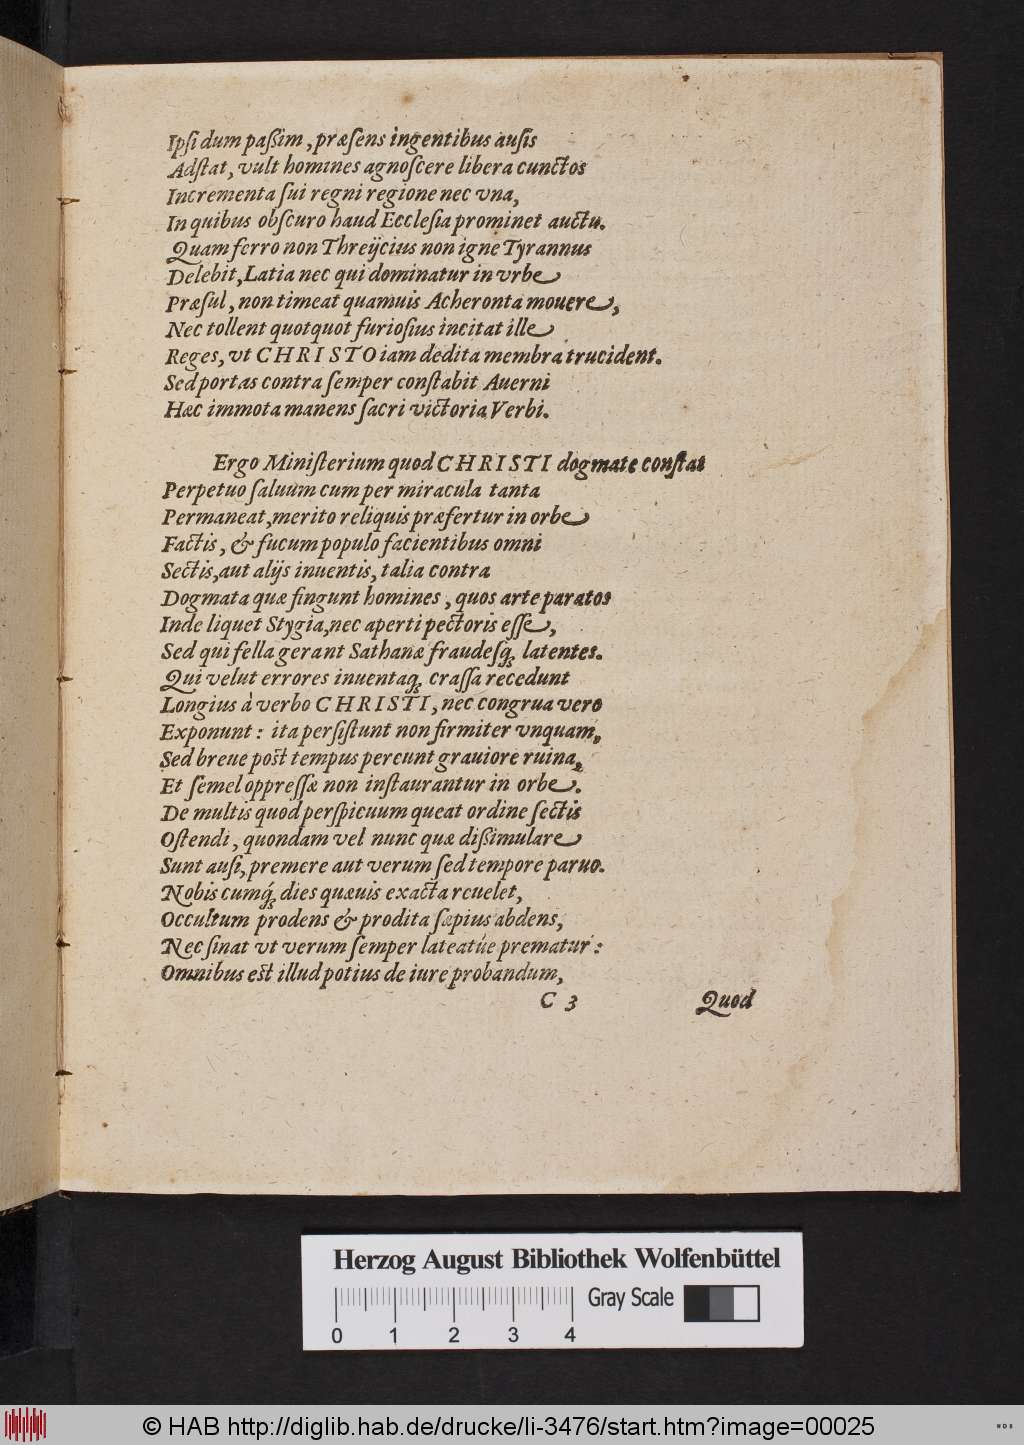 Ipſi dum paßim, præſens ingentibus auſis
Adſtat, vult homines agnoſcere libera cunctos
Incrementa ſui regni regione nec vna,
In quibus obſcuro haud Eccleſia prominet auctu.
Quam ferro non Threijcius non igne Tyrannus
Delebit, Latia nec qui dominatur in vrbe
Præſul, non timeat quamuis Acheronta mouere,
Nec tollent quotquot furioſius incitat ille
Reges, vt CHRISTO iam dedita membra trucident.
Sed portas contra ſemper conſtabit Auerni
Hæc immota manens ſacri victoria Verbi.
Ergo Miniſterium quod CHRISTI dogmate conſtat
Perpetuo ſaluum cum per miracula tanta
Permaneat, merito reliquis præfertur in orbe
Factis, & fucum populo facientibus omni
Sectis, aut alijs inuentis, talia contra
Dogmata quæ fingunt homines, quos arte paratos
Inde liquet Stygia, nec aperti pectoris eſſe,
Sed qui fella gerant Sathanæ fraudesq́; latentes.
Qui velut errores inuentaq; craſſa recedunt
Longius à verbo CHRISTI, nec congrua vero
Exponunt: ita perſiſtunt non firmiter vnquam,
Sed breue post tempus pereunt grauiore ruina,
Et ſemel oppreſſæ non inſtaurantur in orbe.
De multis quod perſpicuum queat ordine ſectis
Oſtendi, quondam vel nunc quæ dißimulare
Sunt auſi, premere aut verum ſed tempore paruo.
Nobis cumq́; dies quæuis exacta reuelet,
Occultum prodens & prodita ſæpius abdens,
Nec ſinat vt verum ſemper lateatúe prematur:
Omnibus est illud potius de iure probandum,
C 3 Quod
Herzog August Bibliothek Wolfenbüttel
Gray Scale
0 1 2 3 4
© HAB http://diglib.hab.de/drucke/li-3476/start.htm?image=00025